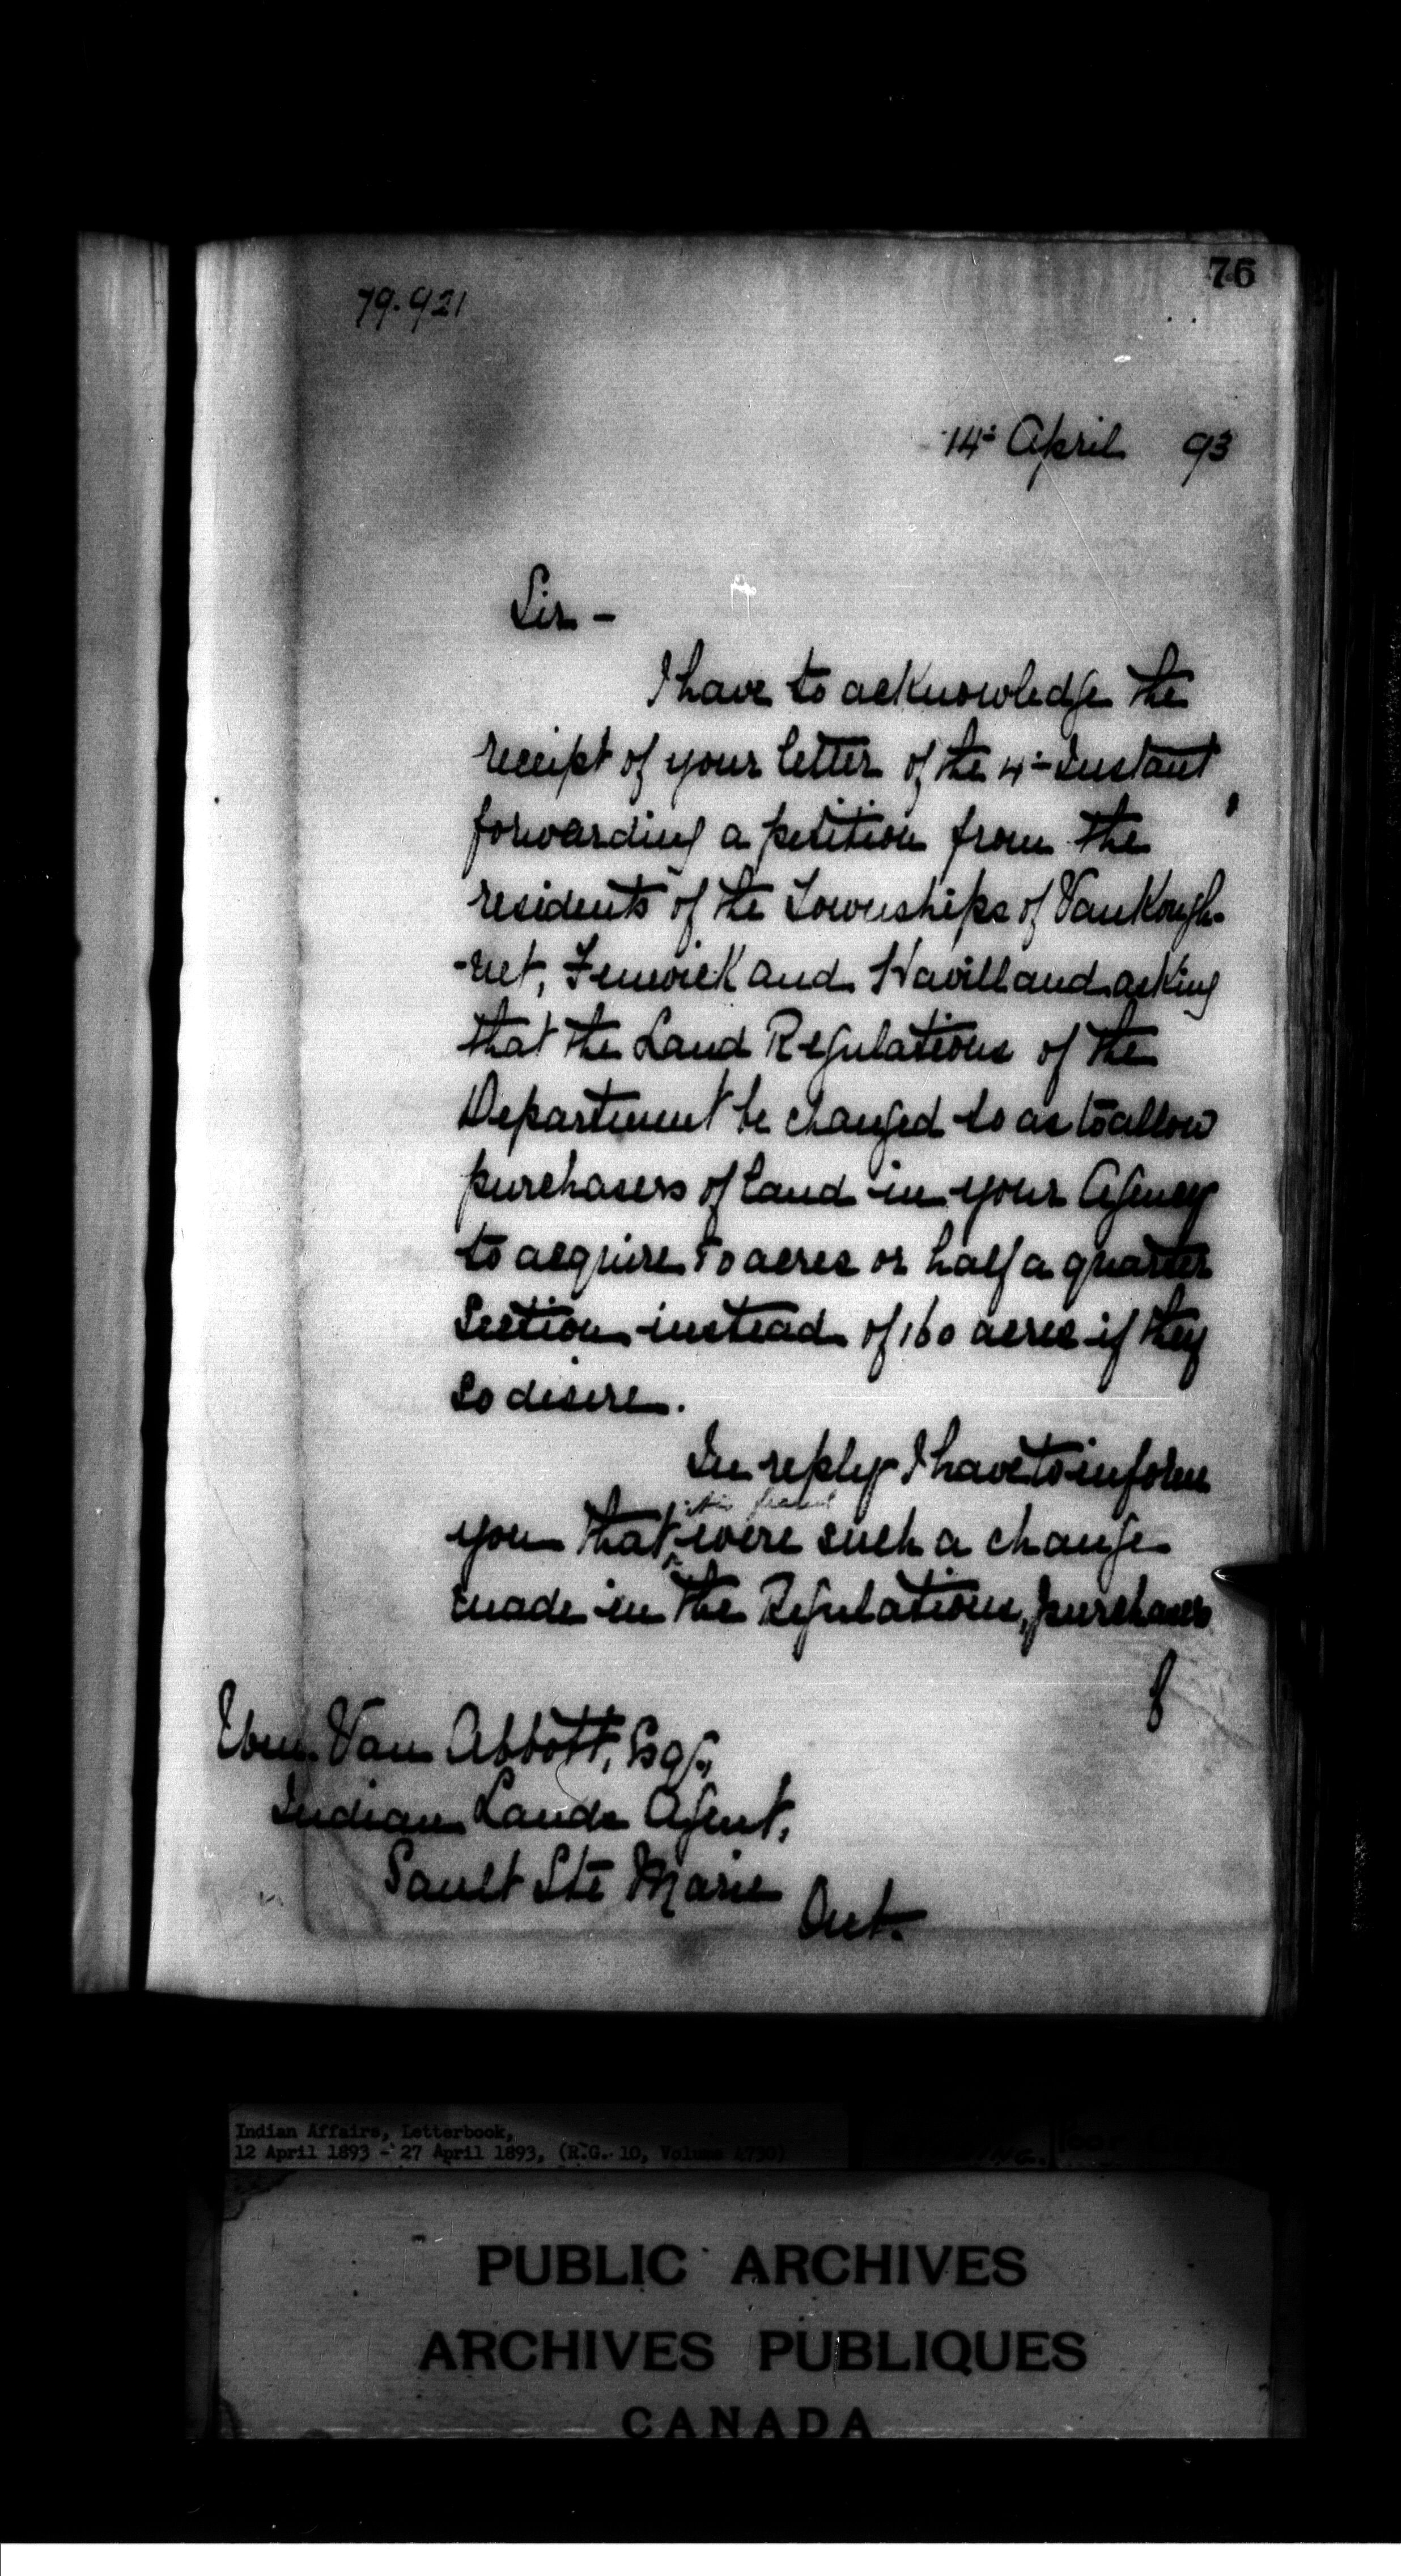 76
79.921
14th April 93
Sir -
I have to acknowledge the
receipt of your letter of the 4th Instant
forwarding a petition from the
residents of the Townships of VanKough-
-net, Fenwick and Havilland asking
that the Land Regulations of the
Department be changed so as to allow
purchasers of land in your Agency
to acquire 80 acres or half a quarter
Section instead of 160 acres if they
so desire.
In reply I have to inform
you that were such a change
made in the Regulations, purchasers
Ebn. Van Abbott, Esqr.,
Indian Lands Agent,
Sault Ste Marie
Ont.
Indian Affairs, Letterbook,
12 April 1893 - 27 April 1893, (R.G. 10, Volume 4730)
PUBLIC ARCHIVES
ARCHIVES PUBLIQUES
CANADA